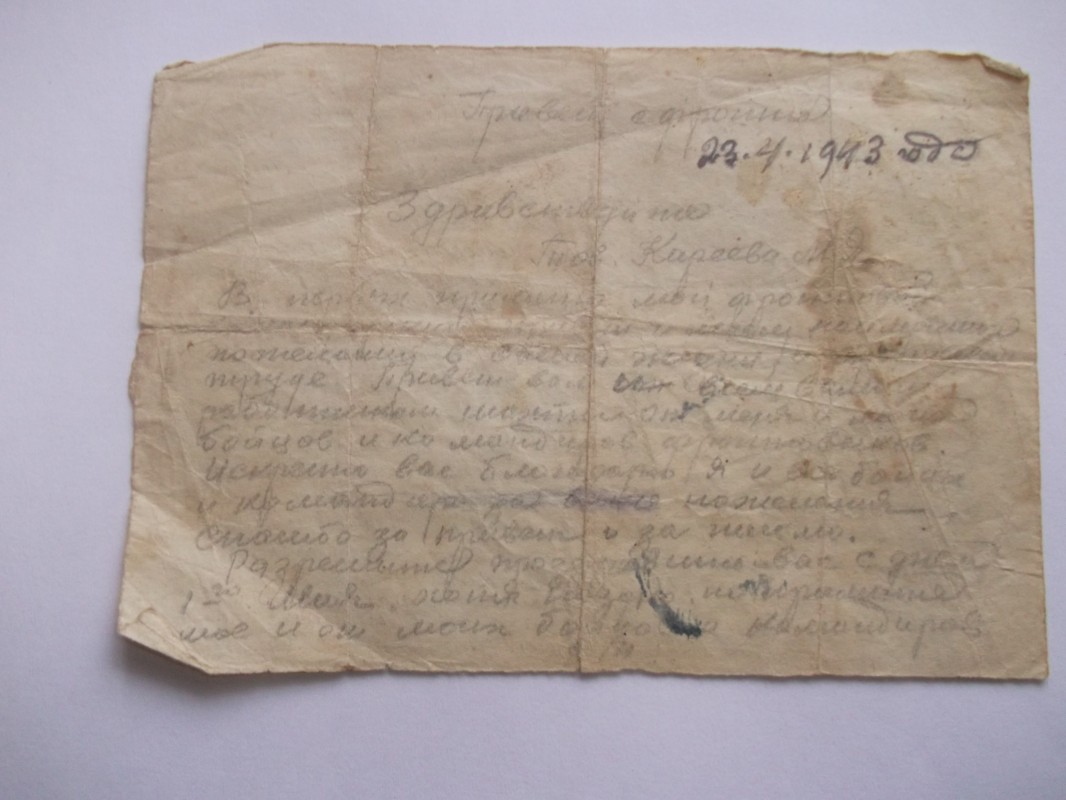 Привет с фронта
23.4.1943 года
Здравствуйте
Тов. Караева М.Я.
В первых примите мой фронтовой
и наилучшие
пожелания в вашей жизни и
труде. Привет вам и всем вашим
работникам от меня и от
бойцов и командиров фронтовиков
Искренно вас благодарю Я и все бойцы
и командиры за ваше пожелания
спасибо за привет и за письмо.
Разрешите поздравить вас с днем
1го Мая.
мое и от моих бойцов и командиров